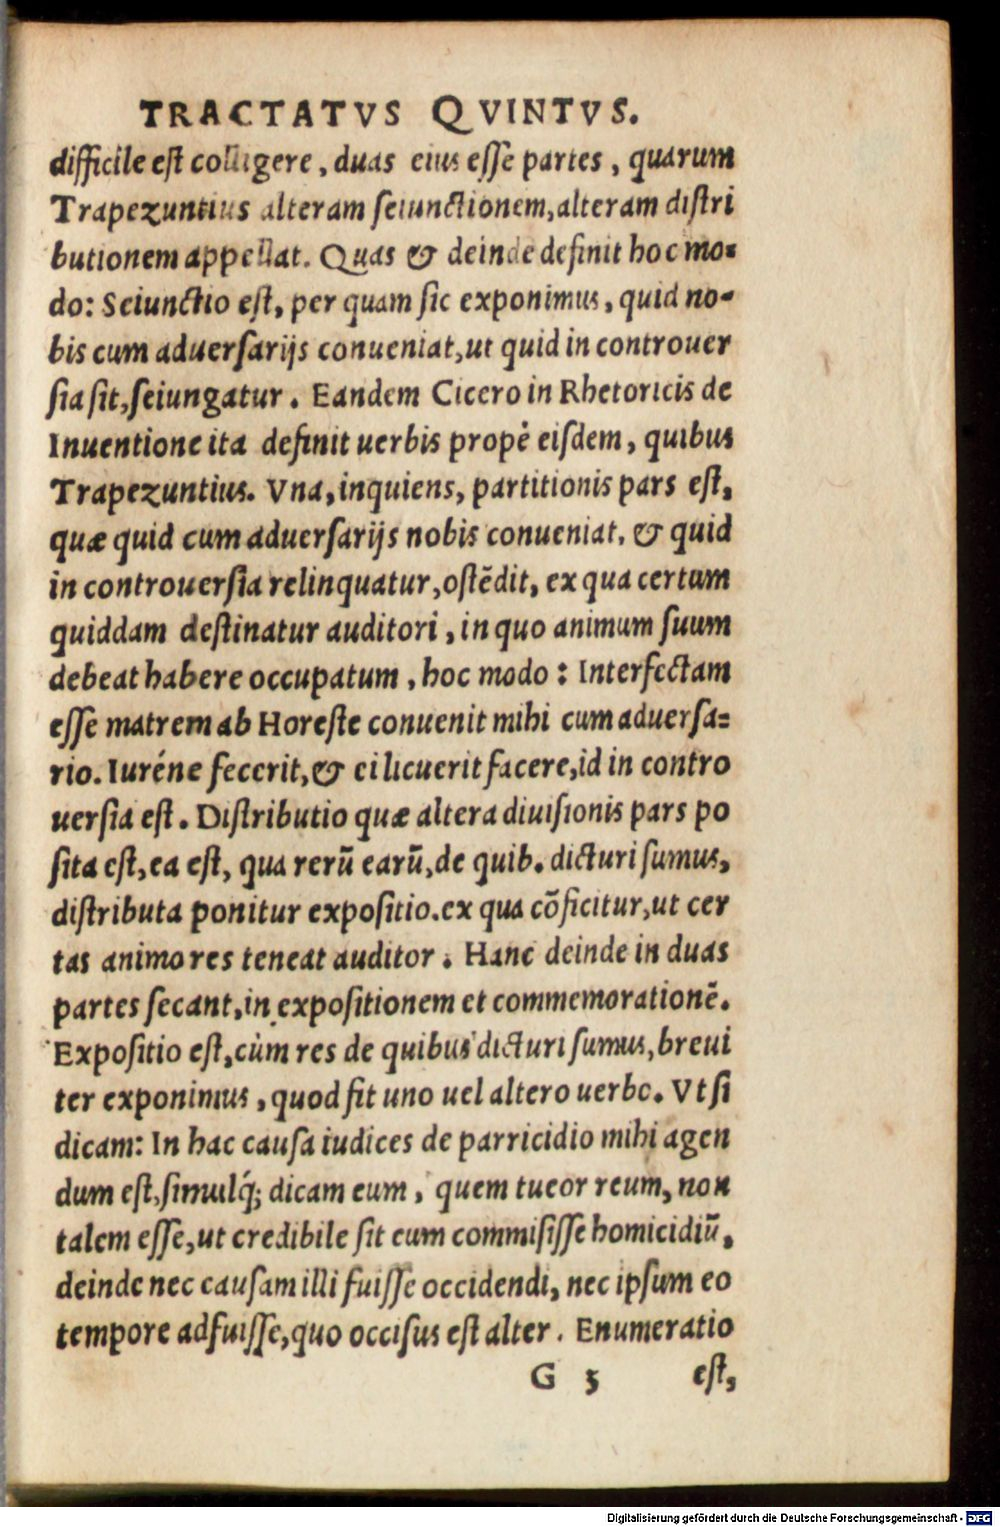 TRACTATVS QVINTVS.
difficile est colligere, duas eius esse partes, quarum
Trapezuntius alteram seiunctionem, alteram distri
butionem appellat. Quas & deinde definit hoc mo-
do: Seiunctio est, per quam sic exponimus, quid no-
bis cum aduersarijs conueniat, ut quid in controuer
sia sit, seiungatur. Eandem Cicero in Rhetoricis de
Inuentione ita definit uerbis propè eisdem, quibus
Trapezuntius. Vna, inquiens, partitionis pars est,
quæ quid cum aduersarijs nobis conueniat, & quid
in controuersia relinquatur, ostēdit, ex qua certum
quiddam destinatur auditori, in quo animum suum
debeat habere occupatum, hoc modo: Interfectam
esse matrem ab Horeste conuenit mihi cum aduersa=
rio. Iuréne fecerit, & ei licuerit facere, id in contro
uersia est. Distributio quæ altera diuisionis pars po
sita est, ea est, qua rerū earū, de quib. dicturi sumus,
distributa ponitur expositio. ex qua cōficitur, ut cer
tas animo res teneat auditor. Hanc deinde in duas
partes secant, in expositionem et commemorationē.
Expositio est, cùm res de quibus dicturi sumus, breui
ter exponimus, quod fit uno uel altero uerbo. Vt si
dicam: In hac causa iudices de parricidio mihi agen
dum est, simulq́; dicam eum, quem tueor reum, non
talem esse, ut credibile sit eum commisisse homicidiū,
deinde nec causam illi fuisse occidendi, nec ipsum eo
tempore adfuisse, quo occisus est alter. Enumeratio
G 5 est,
Digitalisierung gefördert durch die Deutsche Forschungsgemeinschaft - DFG